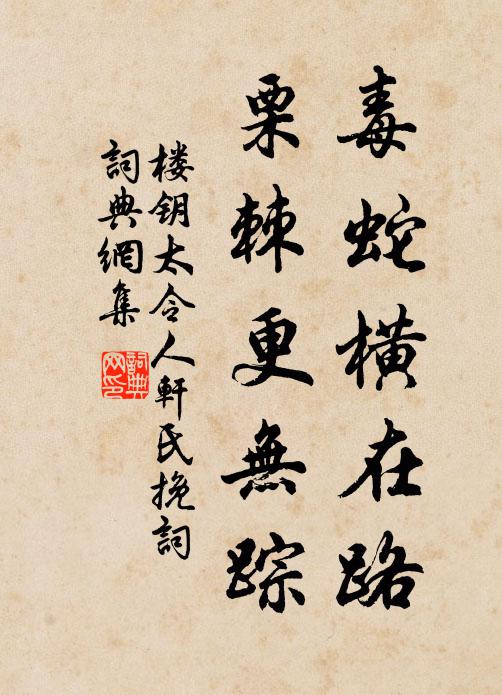 毒蛇橫在路
栗棘更無踪
楼钥太令人軒氏挽詞
詞典網集
詞典网印